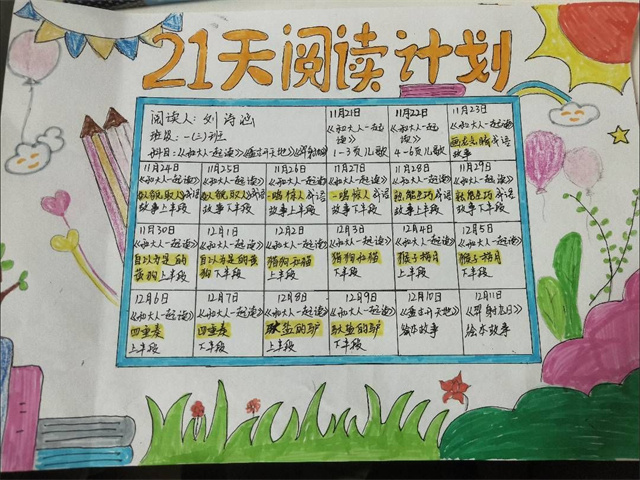 21天阅读计划
阅读人：刘诗涵
班级：一(三)班
书目：《和大人一起读》《盘古开天地》《羿射九日》
11月21日
《和大人一起
读》
1-3页儿歌
11月22日
《和大人一起
读》
4-6页儿歌
11月23日
《和大人一起读》
画龙点睛成语
故事
11月24日
《和大人一起读》
以貌取人成语
故事上半段
11月25日
《和大人一起读》
以貌取人成语
故事下半段
11月26日
《和大人一起读》
一鸣惊人成语
故事上半段
11月27日
《和大人一起读》
一鸣惊人成语
故事下半段
11月28日
《和大人一起读》
熟能生巧成语
故事上半段
11月29日
《和大人一起读》
熟能生巧成语
故事下半段
11月30日
《和大人一起读》
自以为是的
狼狗上半段
12月1日
《和大人一起读》
自以为是的狼
狗下半段
12月2日
《和大人一起读》
猫狗和猫
上半段
12月3日
《和大人一起读》
猫狗和猫
下半段
12月4日
《和大人一起读》
猴子捞月
上半段
12月5日
《和大人一起读》
猴子捞月
下半段
12月6日
《和大人一起读》
四重奏
上半段
12月7日
《和大人一起读》
四重奏
下半段
12月8日
《和大人一起读》
驮盐的驴
上半段
12月9日
《和大人一起读》
驮盐的驴
下半段
12月10日
《盘古开天地》
绘本故事
12月11日
《羿射九日》
绘本故事